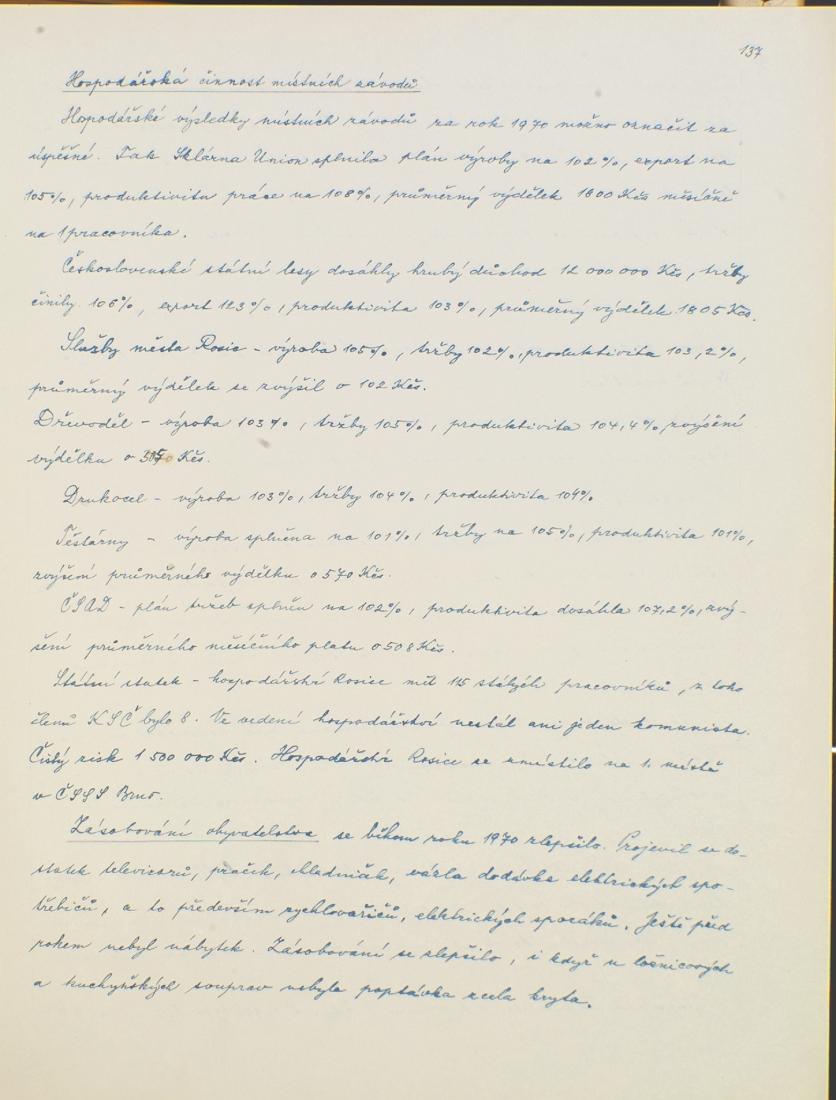 137
Hospodářská činnost místních závodů
Hospodářské výsledky místních závodů za rok 1970 možno označit za
úspěšné. Tak Sklárna Union splnila plán výroby na 102%, export na
105%, produktivitu práce na 108%, průměrný výdělek 1800 Kčs měsíčně
na 1 pracovníka.
Československé státní lesy dosáhly hrubý důchod 12 000 000 Kčs, tržby
činily 106%, export 123%, produktivita 103%, průměrný výdělek 1805 Kčs.
Služby města Rosic - výroba 105%, tržby 102%, produktivita 103,2%,
průměrný výdělek se zvýšil o 102 Kčs.
Dřevoděl - výroba 103%, tržby 105%, produktivita 104,4%, zvýšení
výdělku o Kčs.
Drukocel - výroba 103%, tržby 104%, produktivita 104%
Těstárny - výroba splněna na 101%, tržby na 105%, produktivita 101%,
zvýšení průměrného výdělku o 570 Kčs.
ČSAD - plán tržeb splněn na 102%, produktivita dosáhla 107,2%, zvý-
šení průměrného měsíčního platu o 508 Kčs.
Státní statek - hospodářství Rosice měl 115 stálých pracovníků, z toho
členů KSČ bylo 8. Ve vedení hospodářství nestál ani jeden komunista.
Čistý zisk 1 500 000 Kčs. Hospodářství Rosice se umístilo na 1. místě
v ČSSS Brno.
Zásobování obyvatelstva se během roku 1970 zlepšilo. Projevil se do-
statek televizorů, praček, chladniček, vázla dodávka elektrických spo-
třebičů, a to především rychlovařičů, elektrických sporáků. Ještě před
rokem nebyl nábytek. Zásobování se zlepšilo, i když u ložnicových
a kuchyňských souprav nebyla poptávka zcela kryta.